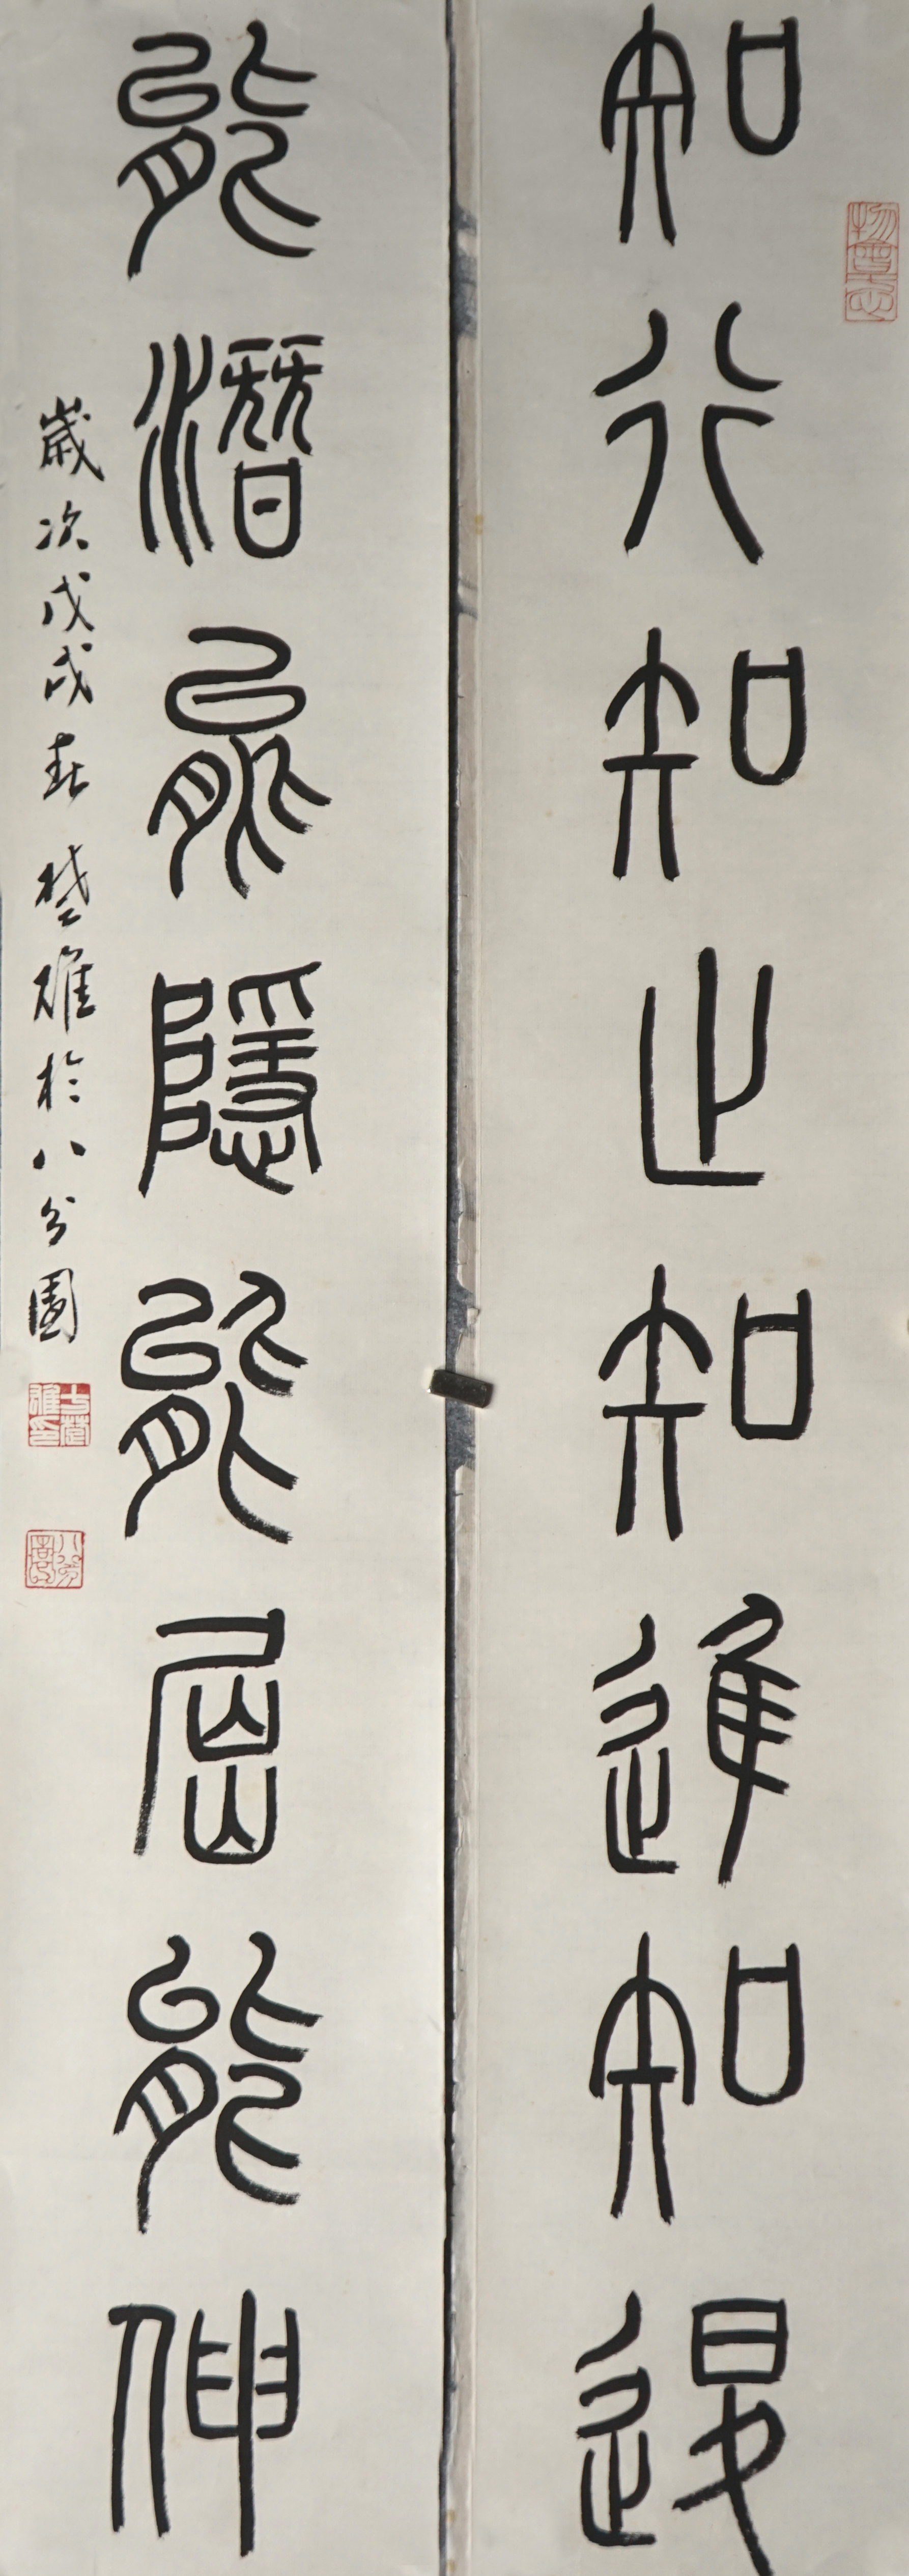 知行知止知進知退
能潛能隱能屈能伸
歲次戊戌春楚雄於八分園